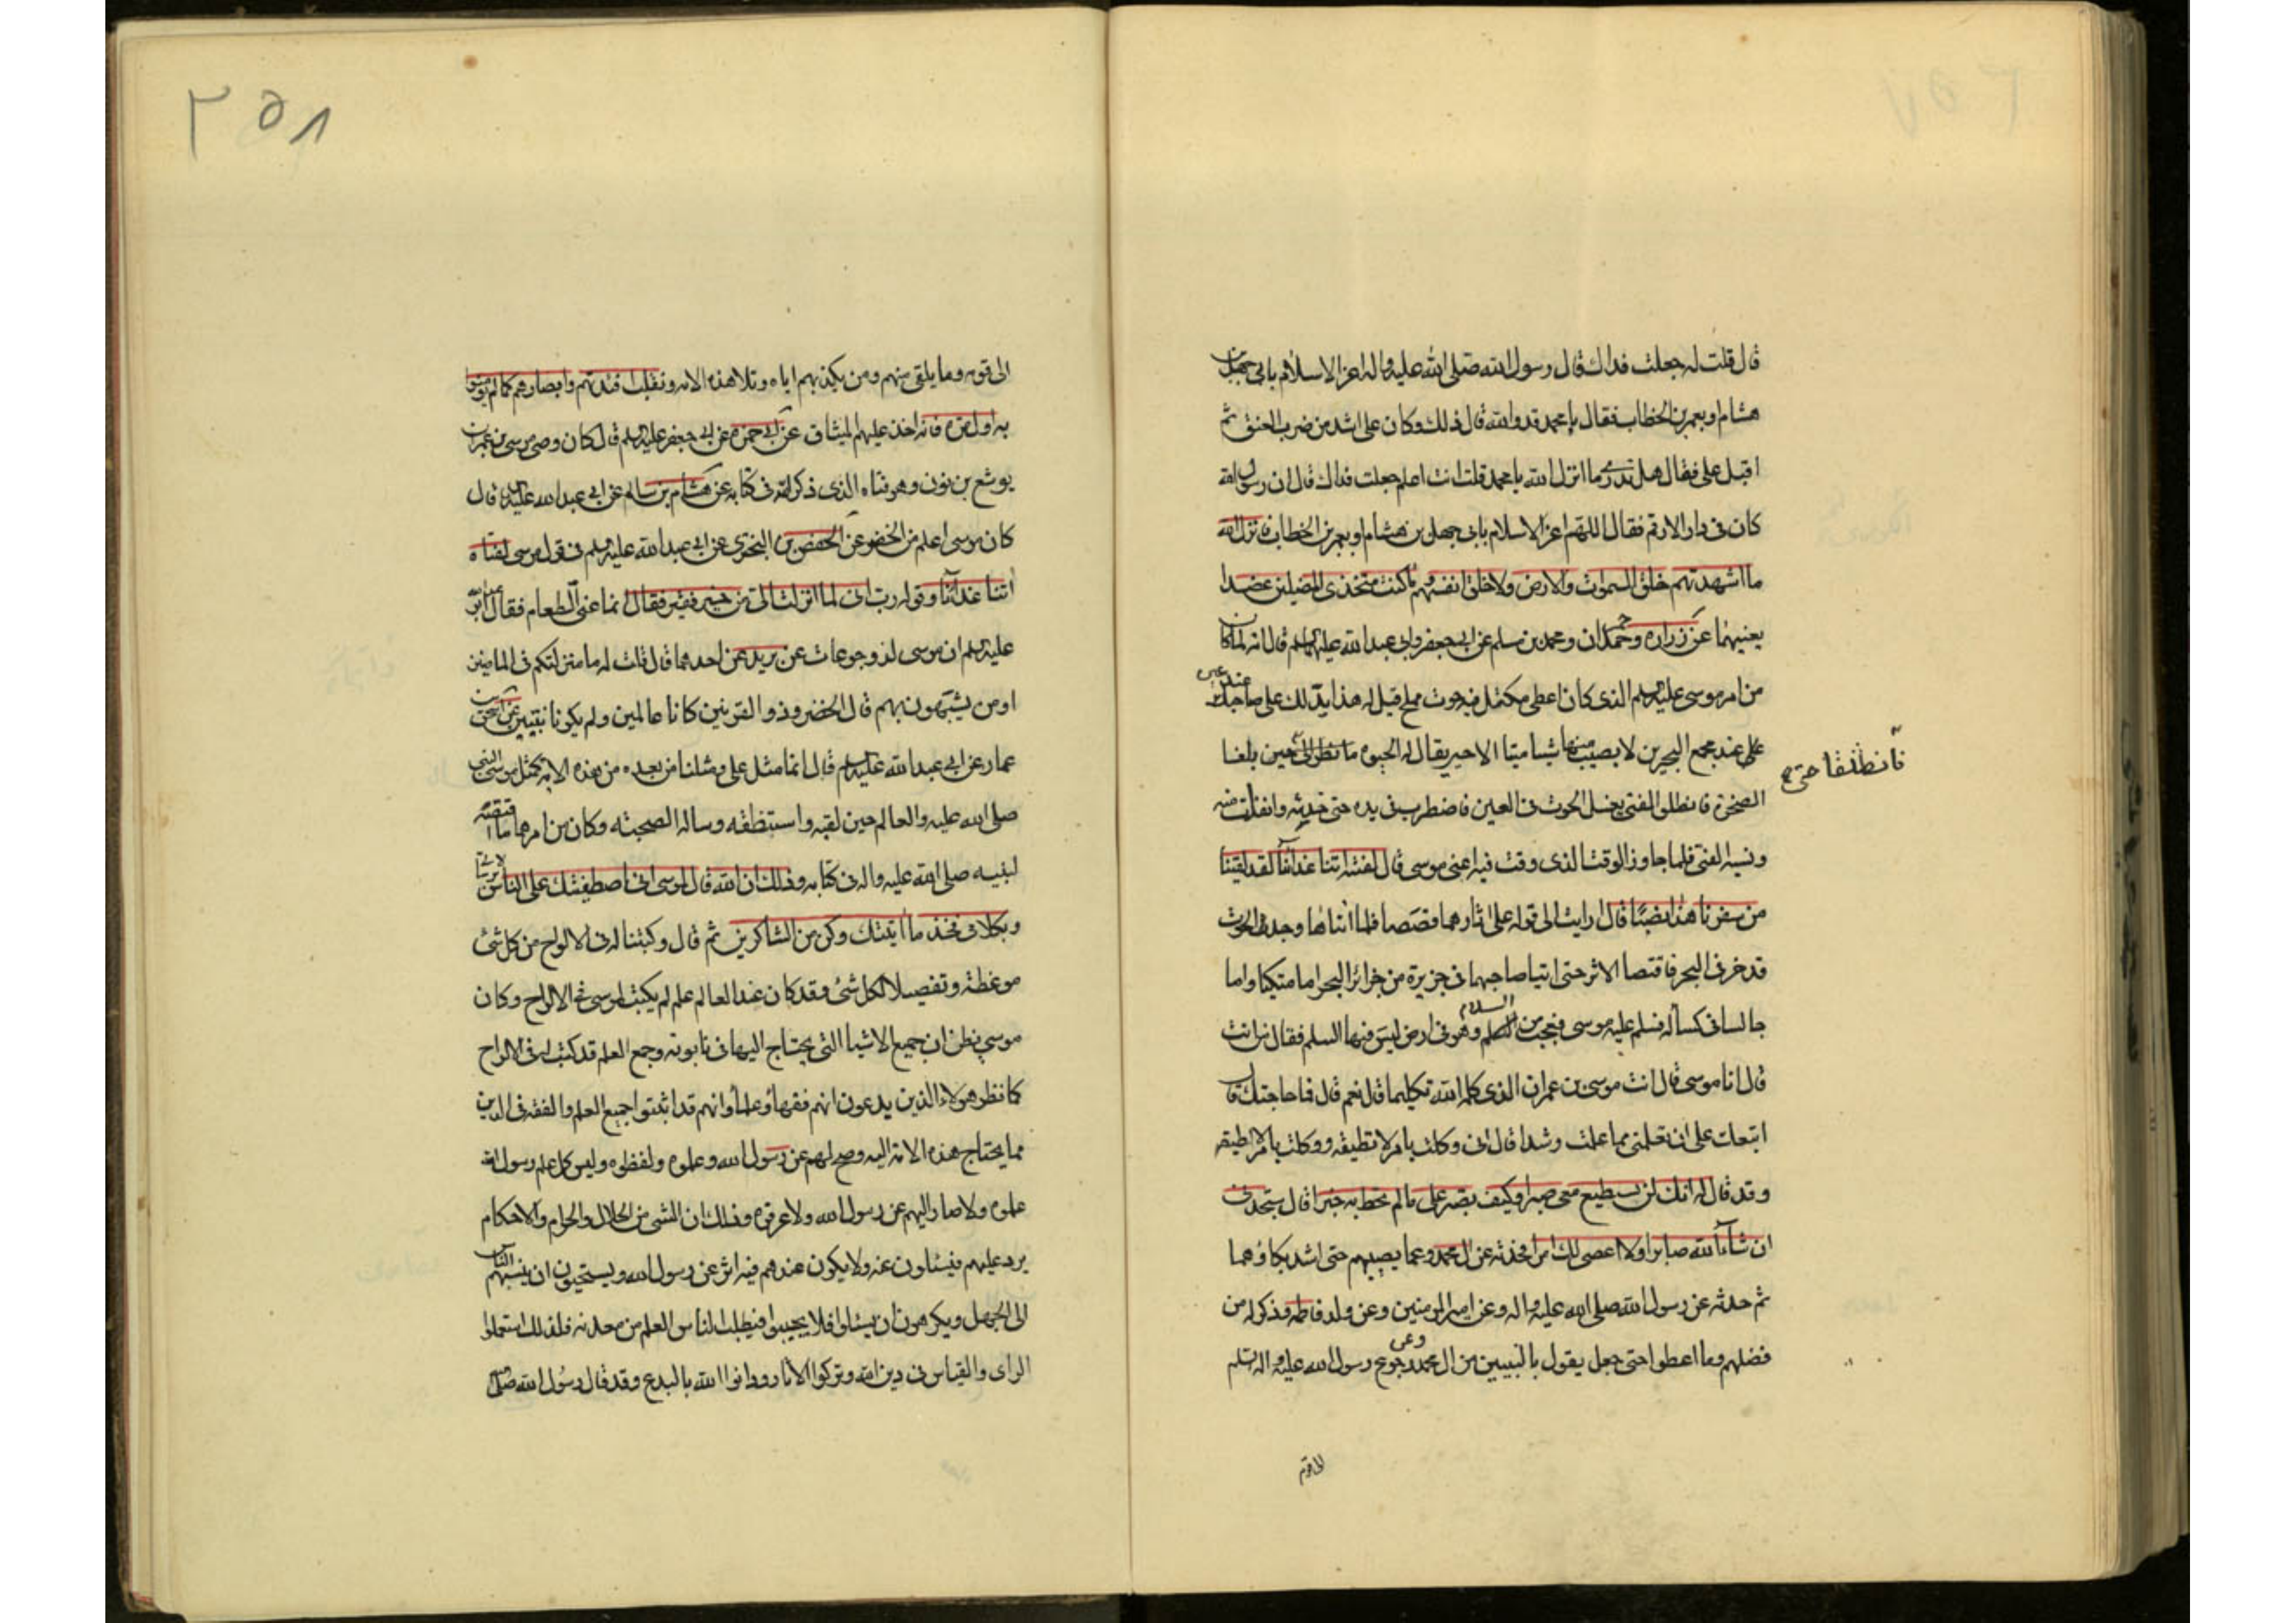 قال قلت له جعلت فداك قال رسول الله صلى الله عليه واله اعز الاسلام بابى جهل بن
هشام او بعمر بن الخطاب فقال يا محمد قد والله قال ذلك وكان على اشد من ضرب العنق ثم
اقبل على فقال هل تدرى ما انزل الله يا محمد قلت انت اعلم جعلت فداك قال ان رسول الله
كان فى دار الارقم فقال اللهم اعز الاسلام بابى جهل بن هشام او بعمر بن الخطاب فانزل الله
ما اشهدتهم خلق السموات والارض ولا خلق انفسهم وما كنت متخذى المضلين عضدا
يعنيهما عن زراره وحمران ومحمد بن مسلم عن ابى جعفر وابى عبد الله عليهم السلم قال انه لما كان
من امر موسى عليه السلم الذى كان اعطى مكتل فيه حوت مملح قيل له هذا يدلك على صاحبك عند عين
على عند مجمع البحرين لا يصيب منها شيا ميتا الا حيى يقال له الحيوه
فانطلقا حتى
حين بلغا
الصخرة فانطلق الفتى يغسل الحوت فى العين فاضطرب فى يده حتى خدشه وانفلت منه
ونسيه الفتى فلما جاوز الوقت الذى وقت فيه اعنى موسى قال لفتيه اتنا غدائنا لقد لقينا
من سفرنا هذا نصبا قال ارايت الى قوله على اثارهما قصصا فلما اتاها وجد الحوت
قد خر فى البحر فاقتصا الاثر حتى اتيا صاحبهما فى جزيرة من جزائر البحر اما متيكا واما
جالسا فى كساله فسلم عليه موسى فعجب من السلام وهو فى ارض ليس فيها السلم فقال من انت
قال انا موسى قال انت موسى بن عمران الذى كلمه الله تكليما قال نعم قال فما حاجتك قال
اتبعك على ان تعلمنى مما علمت رشدا قال انى وكلت بامر لا تطيقه ووكلت بامر لا اطيقه
وقد قال له انك لن تستطيع معى صبرا وكيف تصبر على ما لم تحط به خبرا قال ستجدنى
ان شاء الله صابرا ولا اعصى لك امرا فحدثه عن ال محمد وعما يصيبهم حتى اشد بكاؤهما
ثم حدثه عن رسول الله صلى الله عليه واله وعن امير المومنين وعن ولد فاطمه وذكر له من
فضلهم وما اعطوا حتى جعل يقول يا ليتنى من ال محمد وعن رجوع رسول الله عليه واله وسلم
الى قومه
٣٥٨
الى قومه وما يلقى منهم ومن يكذبهم اياه وتلا هذه الايه ونقلب افئدتهم وابصارهم كما لم يومنوا
به اول مره فانه اخذ عليهم الميثاق عن ابى حمزه عن ابى جعفر عليه السلم قال كان وصى موسى بن عمران
يوشع بن نون وهو فتاه الذى ذكر الله فى كتابه عن هشام بن سالم عن ابى عبد الله عليه السلم قال
كان موسى اعلم من الخضر عن الحفص بن البخترى عن ابى عبد الله عليه السلم فى قول موسى لفتاه
اتنا غدائنا وقوله رب انى لما انزلت الى من خير فقير فقال انما عنى الطعام فقال ابو عبد الله
عليه السلم ان موسى لذو جوعات عن بريد عن احدهما قال قلت له ما منزلتكم فى الماضين
او من يشبهون بهم قال الخضر وذو القرنين كانا عالمين ولم يكونا نبيين عن اسحق بن
عمار عن ابى عبد الله عليه السلم قال انما مثل على ومثلنا من بعده من هذه الامه كمثل موسى النبى
صلى الله عليه والعالم حين لقيه واستنطقه وساله الصحبته وكان من امرهما ما اقتصه
لنبيه صلى الله عليه واله فى كتابه وذلك ان الله قال لموسى انى اصطفيتك على الناس برسالاتى
وبكلامى فخذ ما اتيتك وكن من الشاكرين ثم قال وكتبنا له فى الالواح من كل شئ
موعظة وتفصيلا لكل شئ وقد كان عند العالم علم لم يكتب لموسى فى الالواح وكان
موسى يظن ان جميع الاشيا التى يحتاج اليها فى تابوته وجمع العلم قد كتب له فى الالواح
كما يظن هولاء الذين يدعون انهم فقهاء وعلماء وانهم قد اثبتوا جميع العلم والفقه فى الدين
مما يحتاج هذه الامه اليه وصح لهم عن رسول الله وعلموه ولفظوه وليس كل علم رسول الله
علموه ولا صار اليهم عن رسول الله ولا عرفوه وذلك ان الشئ من الحلال والحرام والاحكام
يرد عليهم فيسئلون عنه ولا يكون عندهم فيه اثر عن رسول الله ويستحيون ان ينسبهم الناس
الى الجهل ويكرهون ان يسئلوا فلا يجيبوا فيطلب الناس العلم من معدنه فلذلك استعملوا
الراى والقياس فى دين الله وتركوا الاثار ودانوا الله بالبدع وقد قال رسول الله صلى